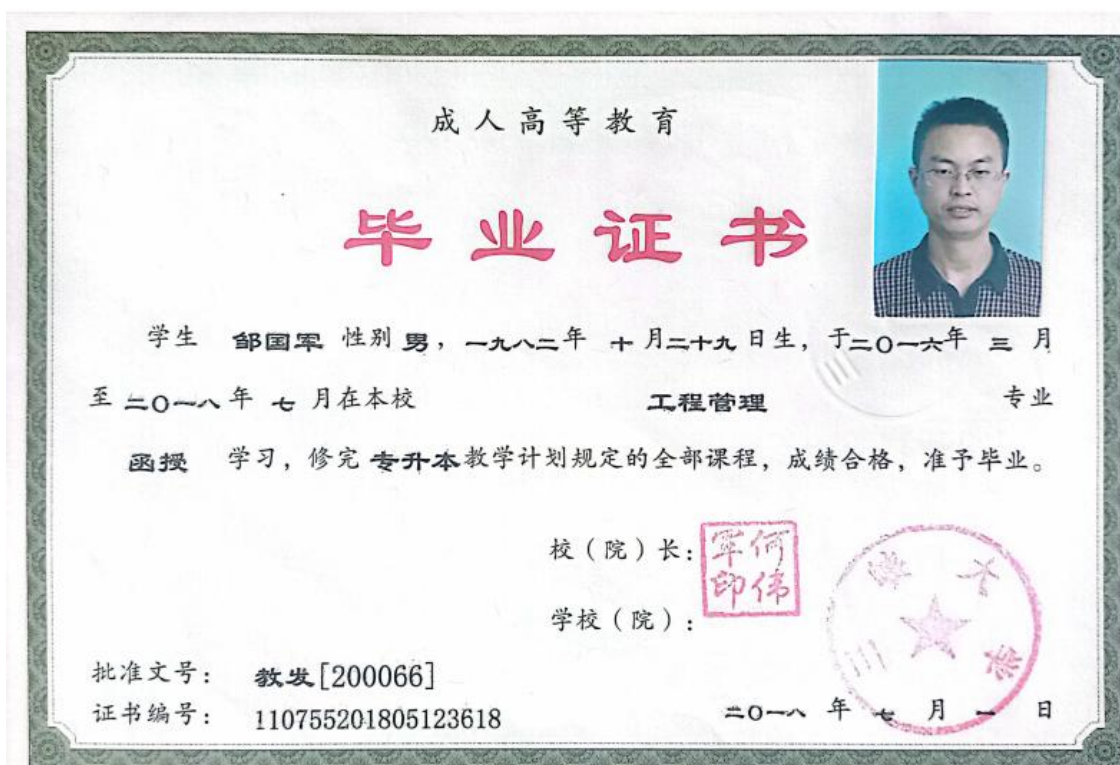 成人高等教育
毕业证书
学生 邹国军 性别 男，一九八二年 十月二十九日生，于二〇一六年 三 月
至 二〇一八 年 七 月在本校 工程管理 专业
函授 学习，修完 专升本教学计划规定的全部课程，成绩合格，准予毕业。
校（院）长：何伟军印
学校（院）：
三峡大学
批准文号： 教发[200066]
证书编号： 110755201805123618
二〇一八 年 七 月 一 日